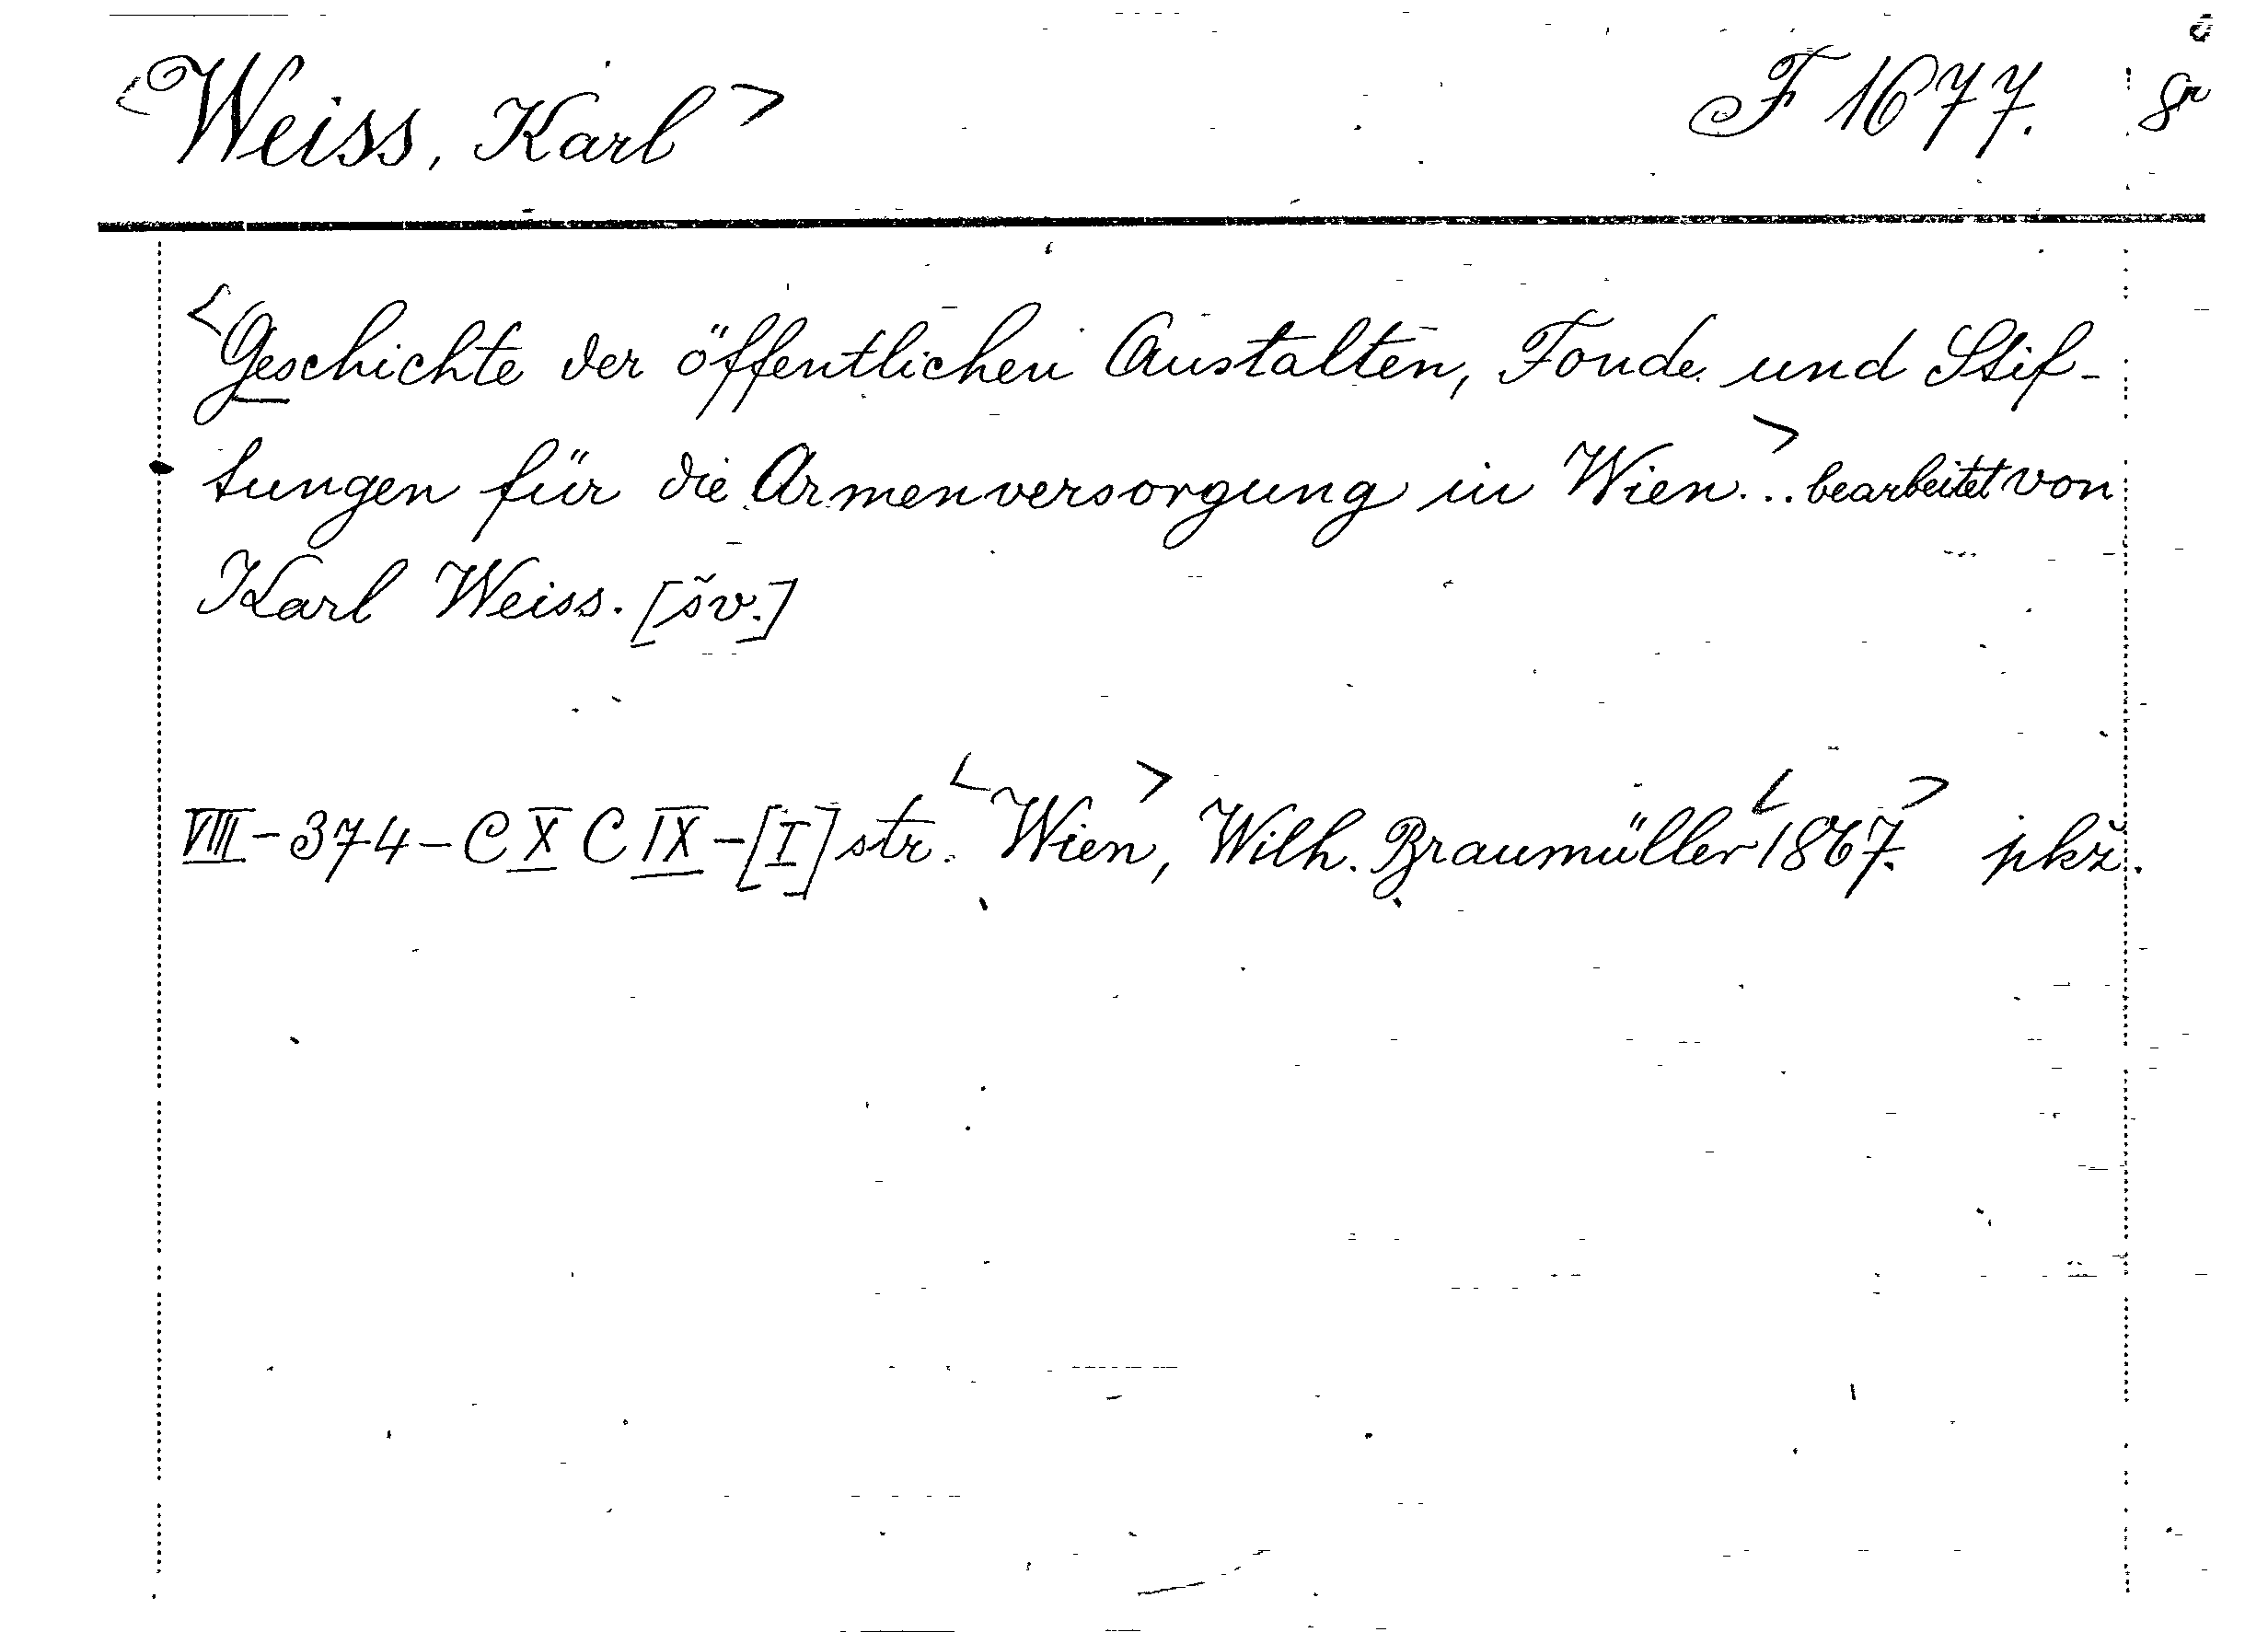 <Weiss, Karl> F 1677. 8º
<Geschichte der öffentlichen Anstalten, Fonde und Stif-
tungen für die Armenversorgung in Wien> ... bearbeitet von
Karl Weiss. [šv.]
VIII-374-CXCIX-[I] str. <Wien>, Wilh. Braumüller <1867.> pkž.